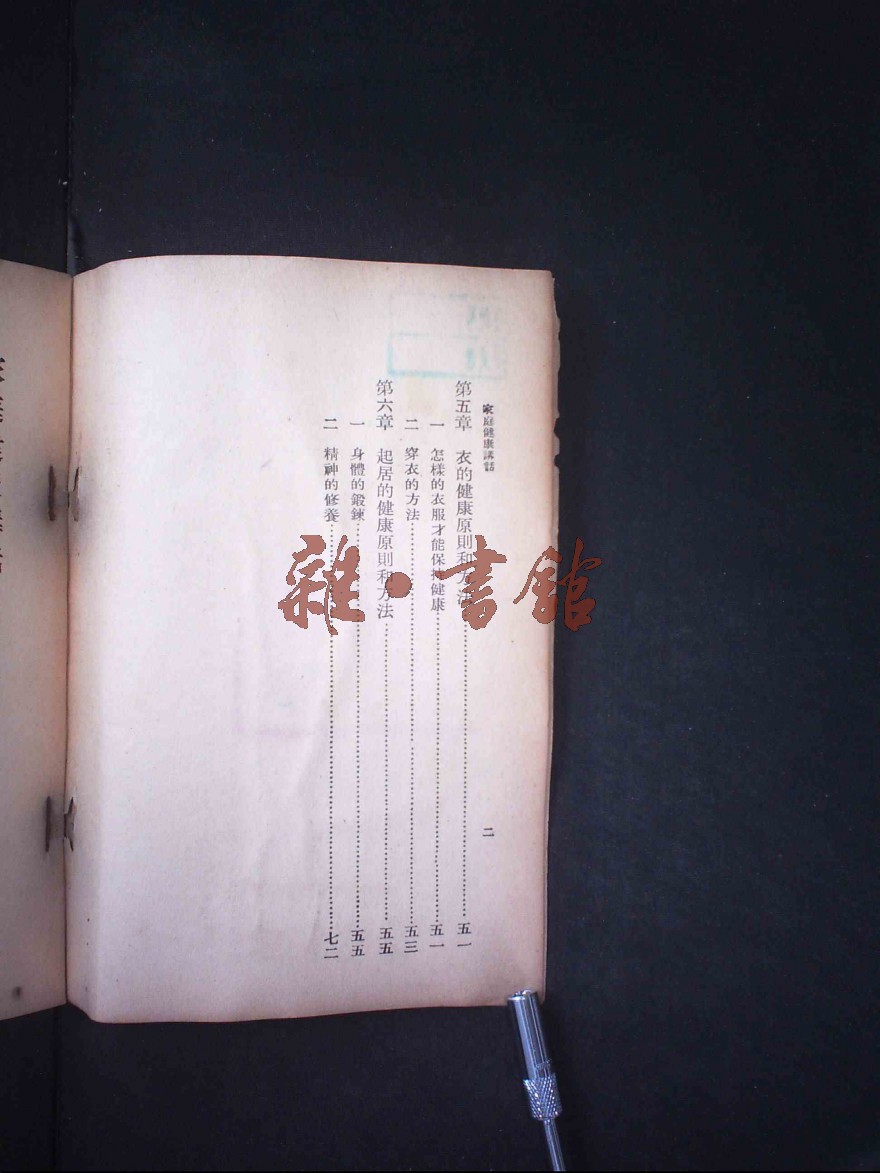 家庭健康講話
二
第五章 衣的健康原則和方法……五一
一 怎樣的衣服才能保持健康……五一
二 穿衣的方法……五三
第六章 起居的健康原則和方法……五五
一 身體的鍛鍊……五五
二 精神的修養……七二
雜·書館